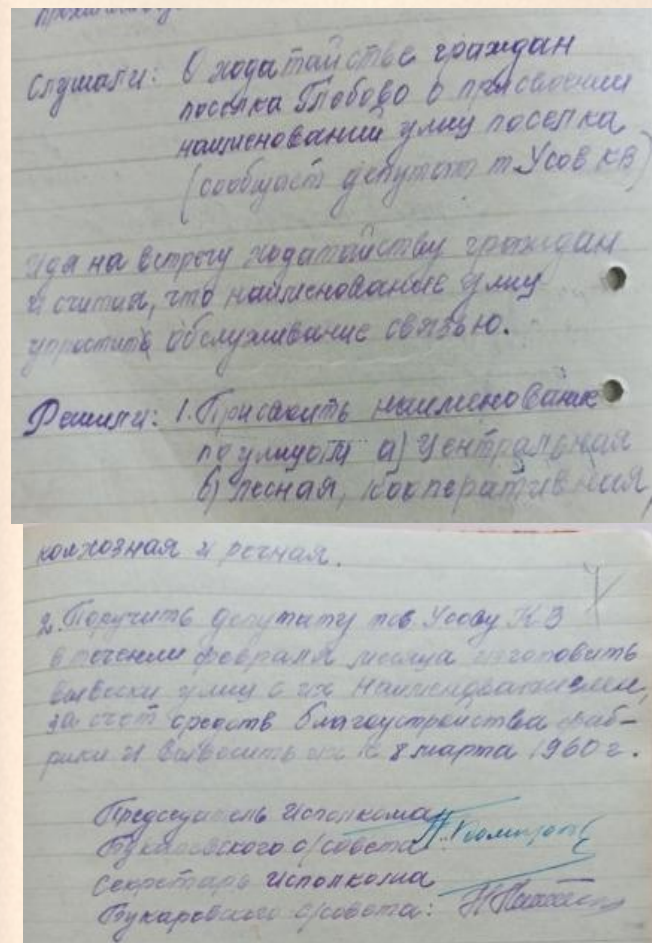 Слушали: О ходатайстве граждан
поселка Глебово о присвоении
наименований улиц поселка
(сообщает депутат т Усов КВ)
Идя на встречу ходатайству граждан
и считая, что наименование улиц
упростить обслуживание связью.
Решили: 1. Присвоить наименование
по улицам а) Центральная
б) Лесная, Кооперативная,
колхозная и речная.
2. Поручить депутату тов Усову К В
в течении февраля месяца изготовить
вывески улиц с их наименованием,
за счет средств благоустройства фаб-
рики и вывесить их к 8 марта 1960 г.
Председатель Исполкома
с/совета
Секретарь Исполкома
с/совета: